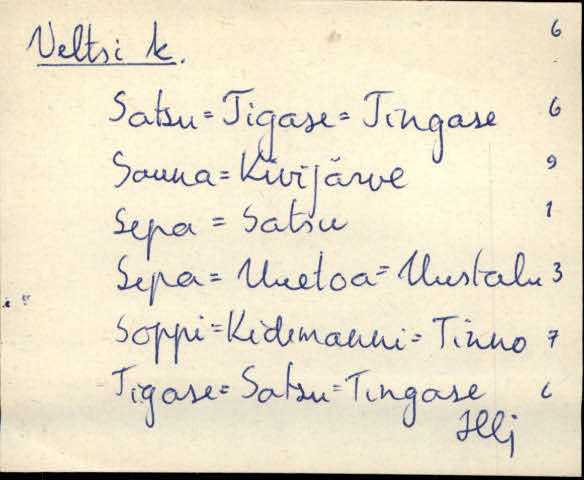 Veltsi k. 6
Satsu = Tigase = Tingase 6
Sauna = Kivijärve 9
Sepa = Satsu 1
Sepa = Uuetoa = Uustalu 3
Soppi = Kidemanni = Tinno 7
Tigase = Satsu = Tingase 6